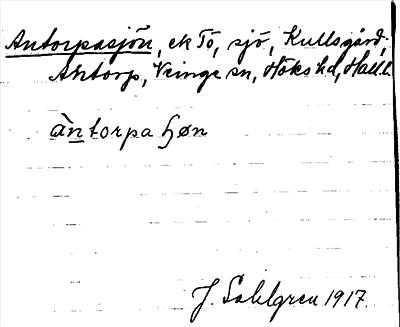 Antorpasjön, ek Tö, sjö, Kullsgård,
Antorp, Veinge sn, Höks hd, Hall. l.
àntorpa ɧøn
J. Sahlgren 1917.